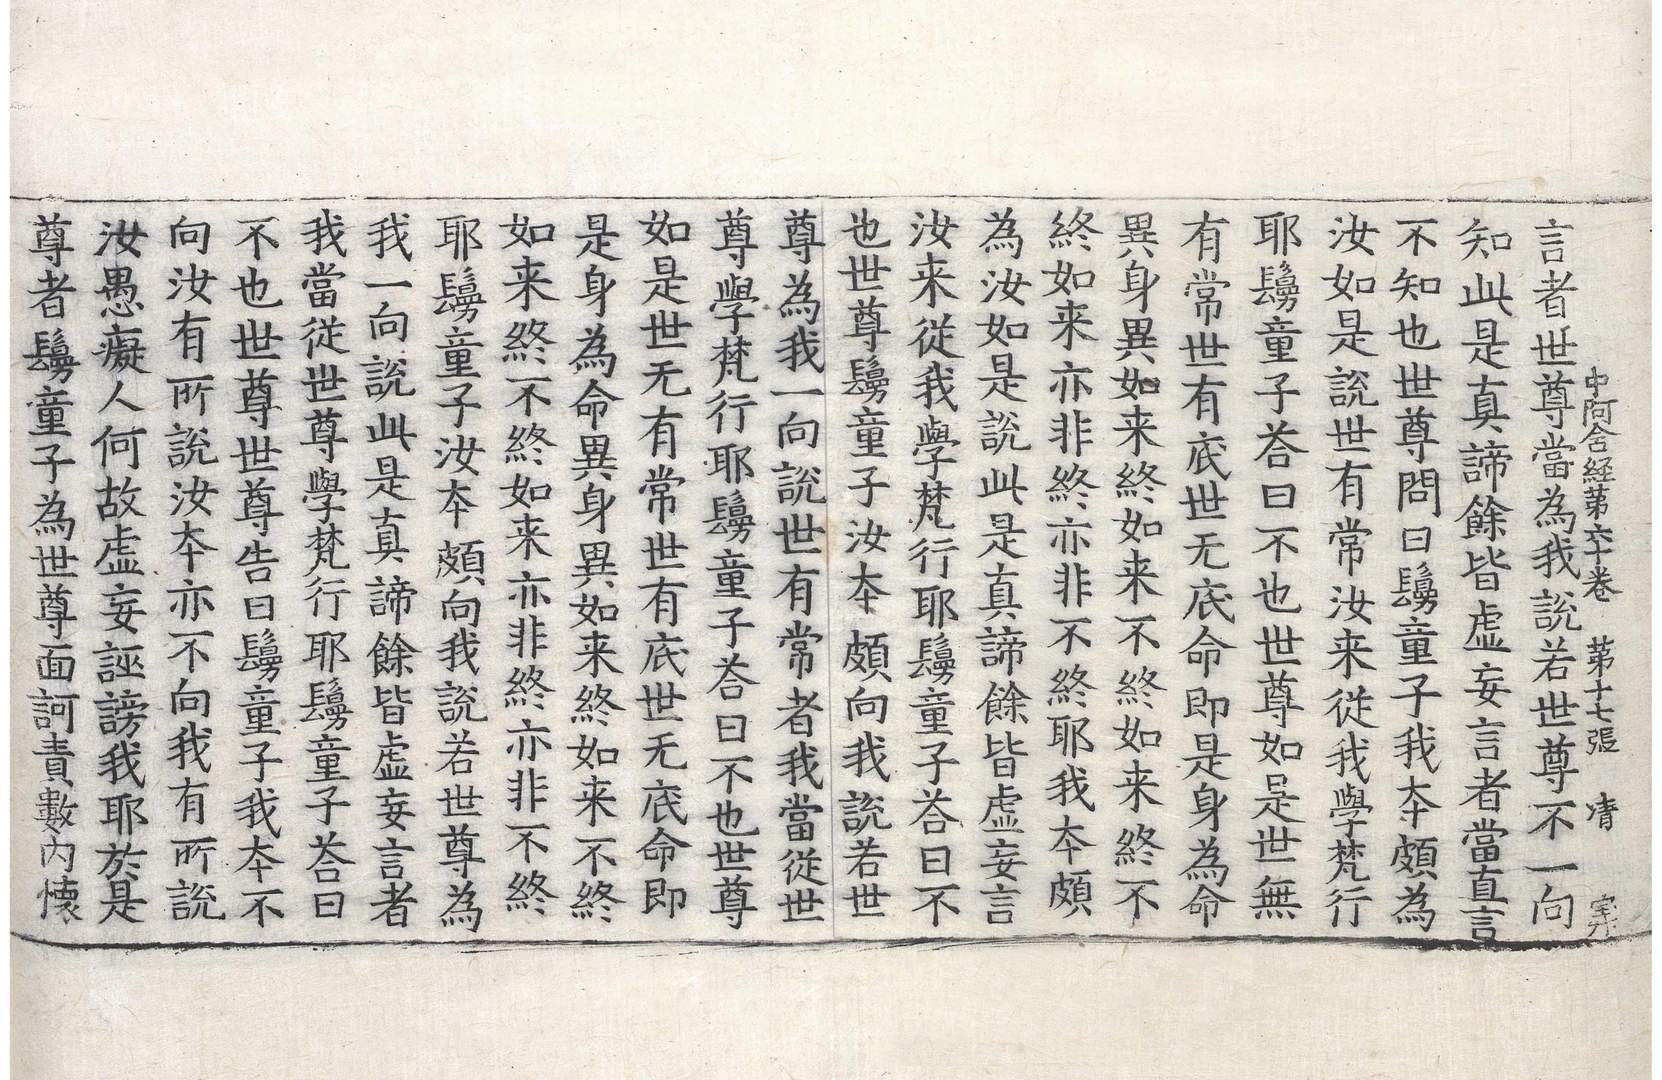 中阿含経第六十卷 第十七張 凊
言者世尊當為我說若世尊不一向
知此是真諦餘皆虛妄言者當直言
不知也世尊問曰鬘童子我夲頗為
汝如是說世有常汝来從我學梵行
耶鬘童子荅曰不也世尊如是世無
有常世有底世无底命即是身為命
異身異如来終如来不終如来終不
終如来亦非終亦非不終耶我夲頗
為汝如是說此是真諦餘皆虛妄言
汝来從我學梵行耶鬘童子荅曰不
也世尊鬘童子汝夲頗向我說若世
尊為我一向說世有常者我當從世
尊學梵行耶鬘童子荅曰不也世尊
如是世无有常世有底世无底命即
是身為命異身異如来終如来不終
如来終不終如来亦非終亦非不終
耶鬘童子汝夲頗向我說若世尊為
我一向說此是真諦餘皆虛妄言者
我當從世尊學梵行耶鬘童子荅曰
不也世尊世尊告曰鬘童子我夲不
向汝有所說汝夲亦不向我有所說
汝愚癡人何故虛妄誣謗我耶於是
尊者鬘童子為世尊面訶責數內懷